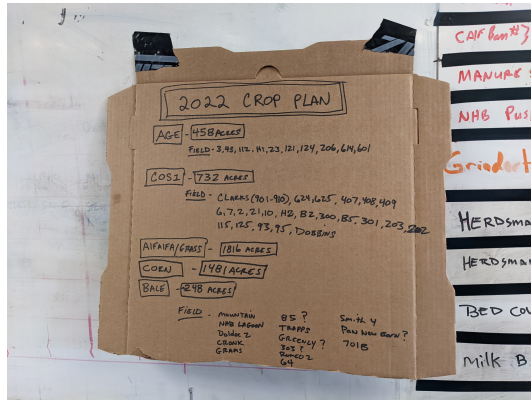 2022 CROP PLAN
AGE - 458 ACRES
FIELD - 3, 45, 112, H1, 23, 121, 124, 206, 614, 601
COS1 - 732 ACRES
FIELD - CLARKS (901-910), 624, 625, 407, 408, 409
6, 7, 2, 21, 10, H2, B2, 300, B5, 301, 203, 202
115, 125, 93, 95, DOBBINS
AlFAlFA/GRASS - 1816 ACRES
CORN - 1481 ACRES
BALE - 248 ACRES
FIELD - MOUNTAIN
NHB LAGOON
CRONK
GRAMS
85 ?
TRAPPS
GREENLY ?
303 ?
ROMEO 2
64
Smith 4
New BARN ?
701B
CAlF Barn #3
MANURE
NHB
HERDSMA
HERDSMA
BED CO
MilK B